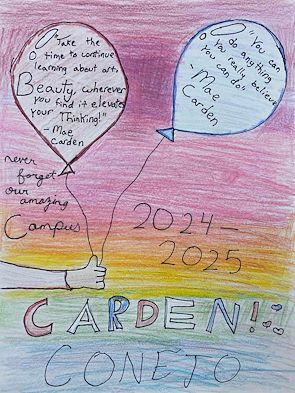 "Take the
time to continue
learning about art,
Beauty, wherever
you find it elevates
your Thinking!"
- Mae
Carden
"You can
do anything
you really believe
you can do"
- Mae
Carden
never
forget
our
amazing
Campus
2024-
2025
CARDEN!
CONEJO